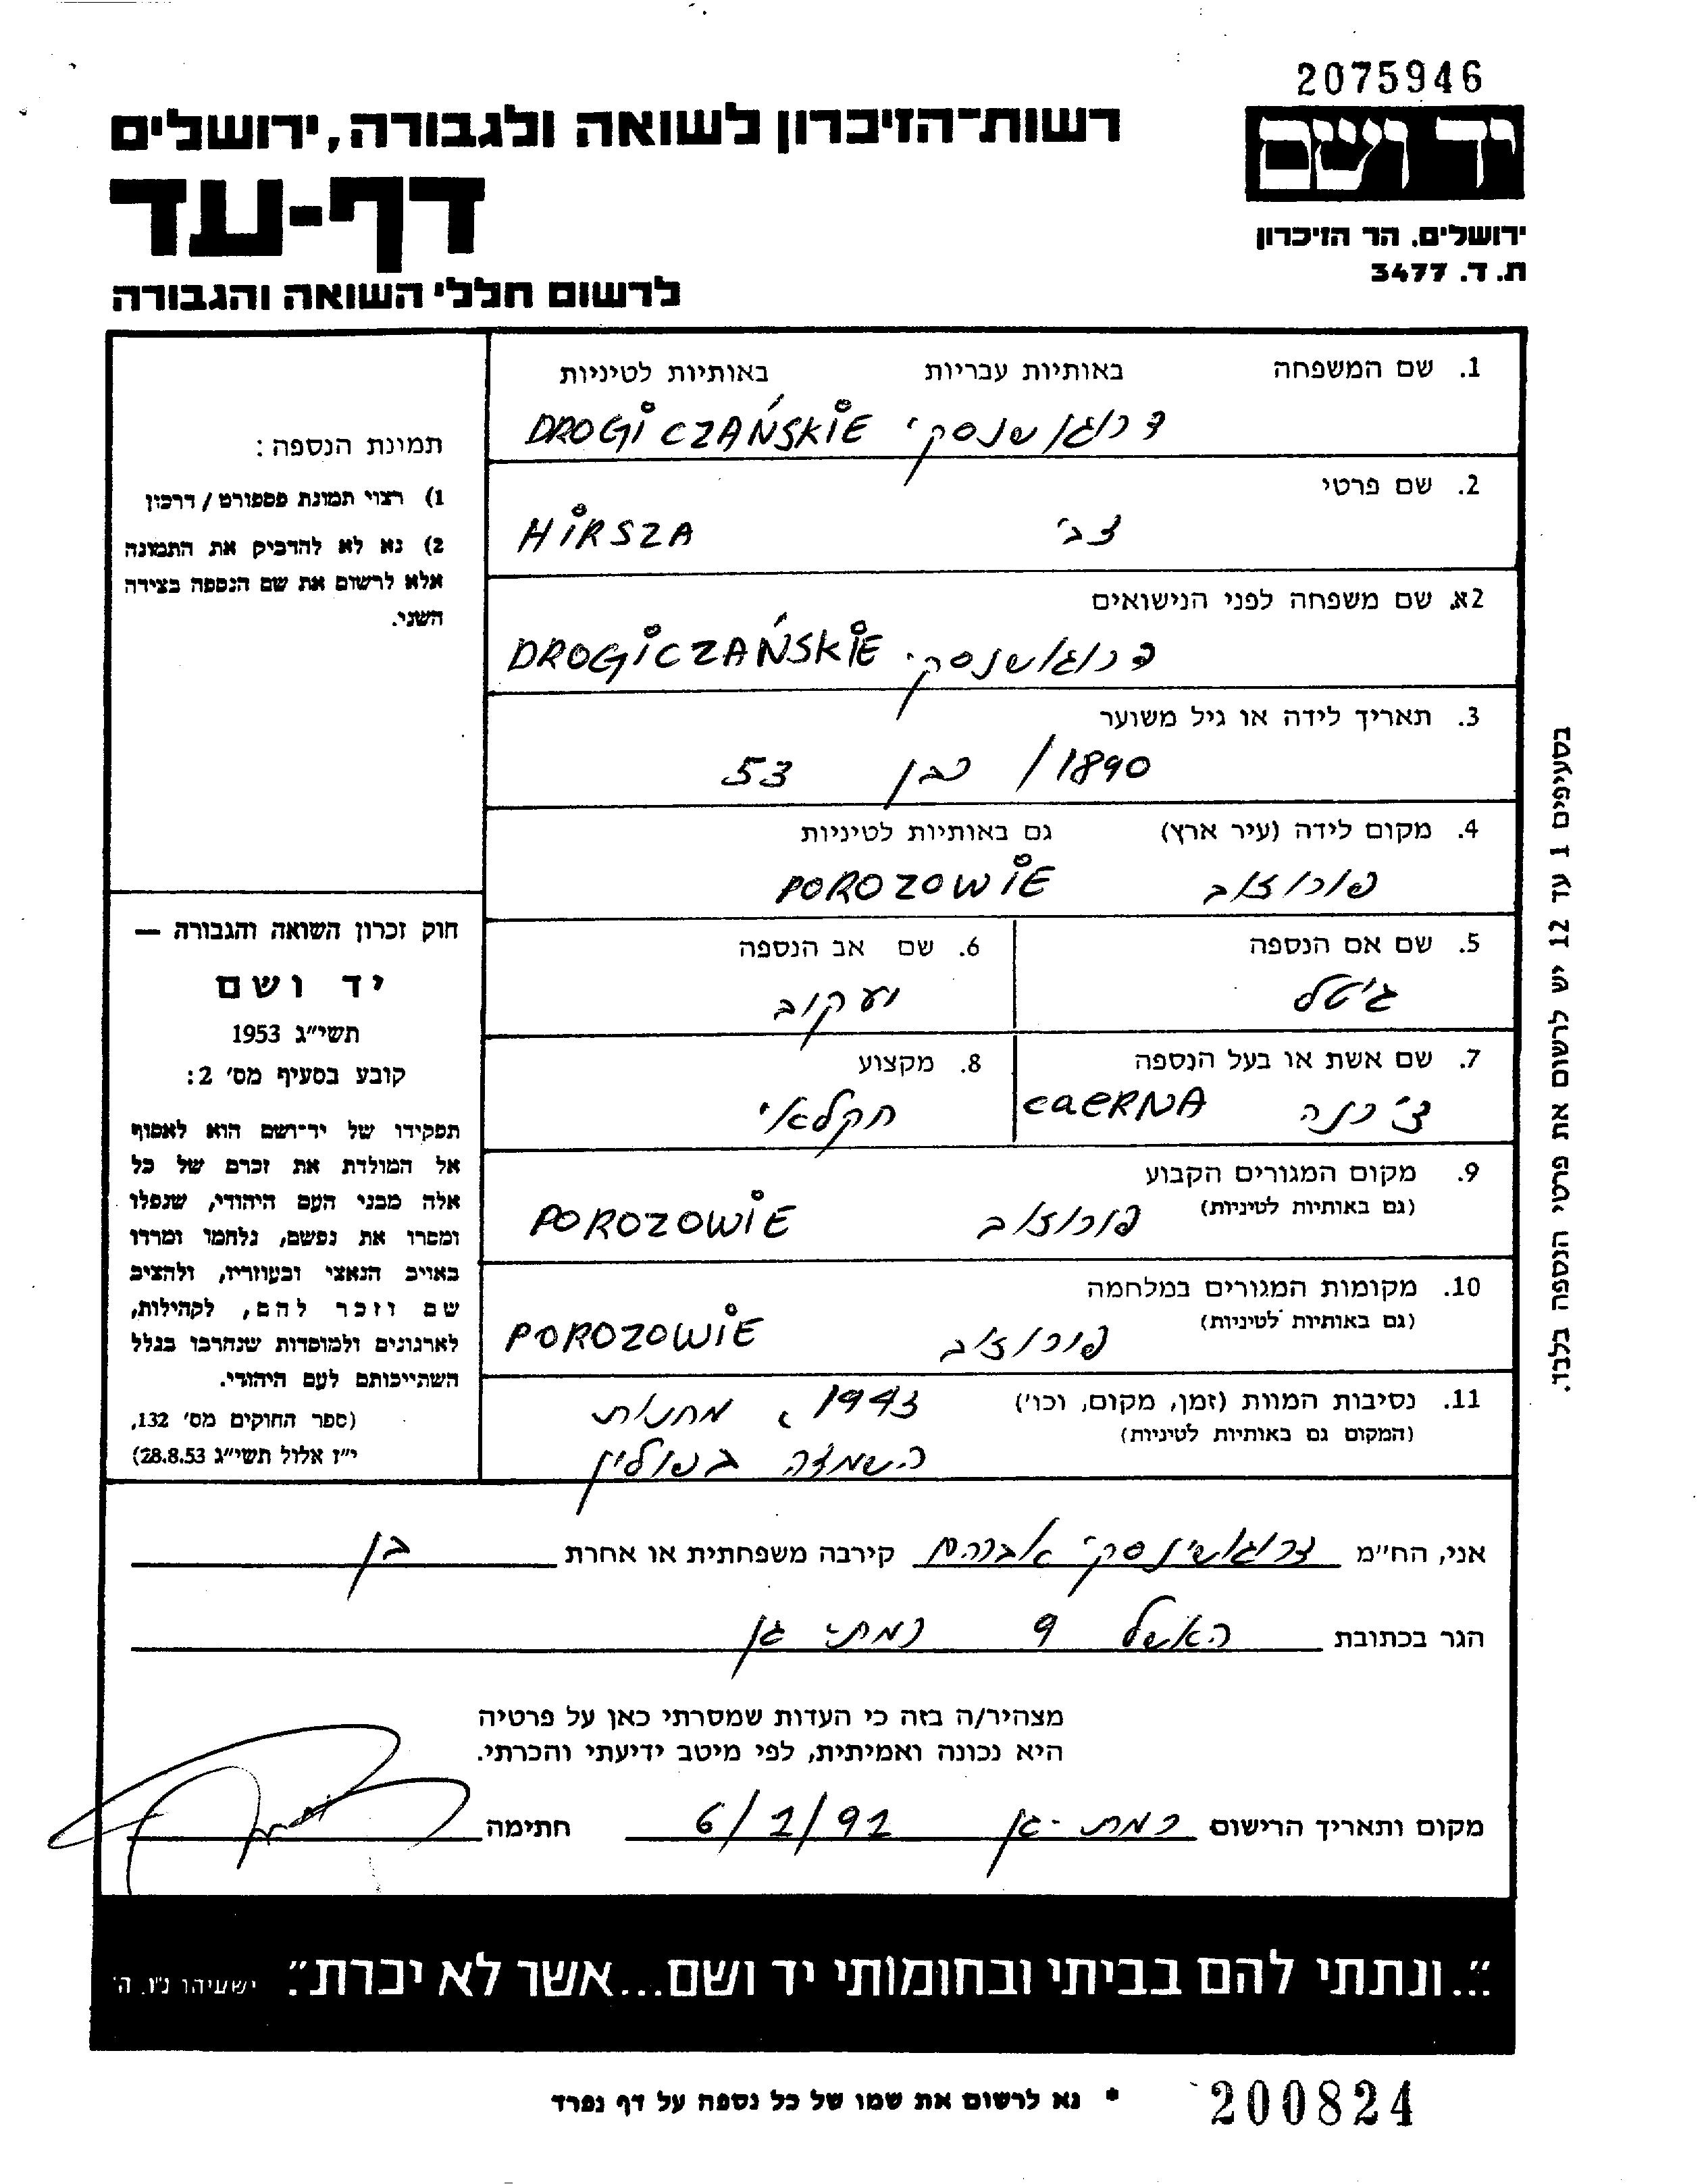 2075946
יד ושם
ירושלים. הר הזיכרון
ת. ד. 3477
רשות־הזיכרון לשואה ולגבורה, ירושלים
דף-עד
לרשום חללי השואה והגבורה
1. שם המשפחה באותיות עבריות באותיות לטיניות
דרוגושנסקי DROGICZAŃSKIE
2. שם פרטי
צבי HIRSZA
2א. שם משפחה לפני הנישואים
דרוגושנסקי DROGICZAŃSKIE
3. תאריך לידה או גיל משוער
1890 / כבן 53
4. מקום לידה (עיר ארץ) גם באותיות לטיניות
פורוזוב POROZOWIE
5. שם אם הנספה
גיטל
6. שם אב הנספה
יעקוב
7. שם אשת או בעל הנספה
צ'רנה
8. מקצוע
חקלאי
9. מקום המגורים הקבוע
(גם באותיות לטיניות)
פורוזוב POROZOWIE
10. מקומות המגורים במלחמה
(גם באותיות לטיניות)
פורוזוב POROZOWIE
11. נסיבות המוות (זמן, מקום, וכו')
(המקום גם באותיות לטיניות)
1943, מחנות
השמדה בפולין
תמונת הנספה:
1) רצוי תמונת פספורט / דרכון
2) נא לא להדביק את התמונה
אלא לרשום את שם הנספה בצידה
השני.
חוק זכרון השואה והגבורה —
יד ושם
תשי״ג 1953
קובע בסעיף מס' 2:
תפקידו של יד־ושם הוא לאסוף
אל המולדת את זכרם של כל
אלה מבני העם היהודי, שנפלו
ומסרו את נפשם, נלחמו ומרדו
באויב הנאצי ובעוזריו, ולהציב
שם וזכר להם, לקהילות,
לארגונים ולמוסדות שנחרבו בגלל
השתייכותם לעם היהודי.
(ספר החוקים מס' 132,
י״ז אלול תשי״ג 28.8.53)
בסעיפים 1 עד 12 יש לרשום את פרטי הנספה בלבד.
אני, הח״מ דרוגושינסקי אברהם קירבה משפחתית או אחרת בן
הגר בכתובת האשל 9 רמת גן
מצהיר/ה בזה כי העדות שמסרתי כאן על פרטיה
היא נכונה ואמיתית, לפי מיטב ידיעתי והכרתי.
מקום ותאריך הרישום רמת-גן 6/2/92 חתימה
״...ונתתי להם בביתי ובחומותי יד ושם...אשר לא יכרת״. ישעיהו נ״ו. ה'
* נא לרשום את שמו של כל נספה על דף נפרד
200824